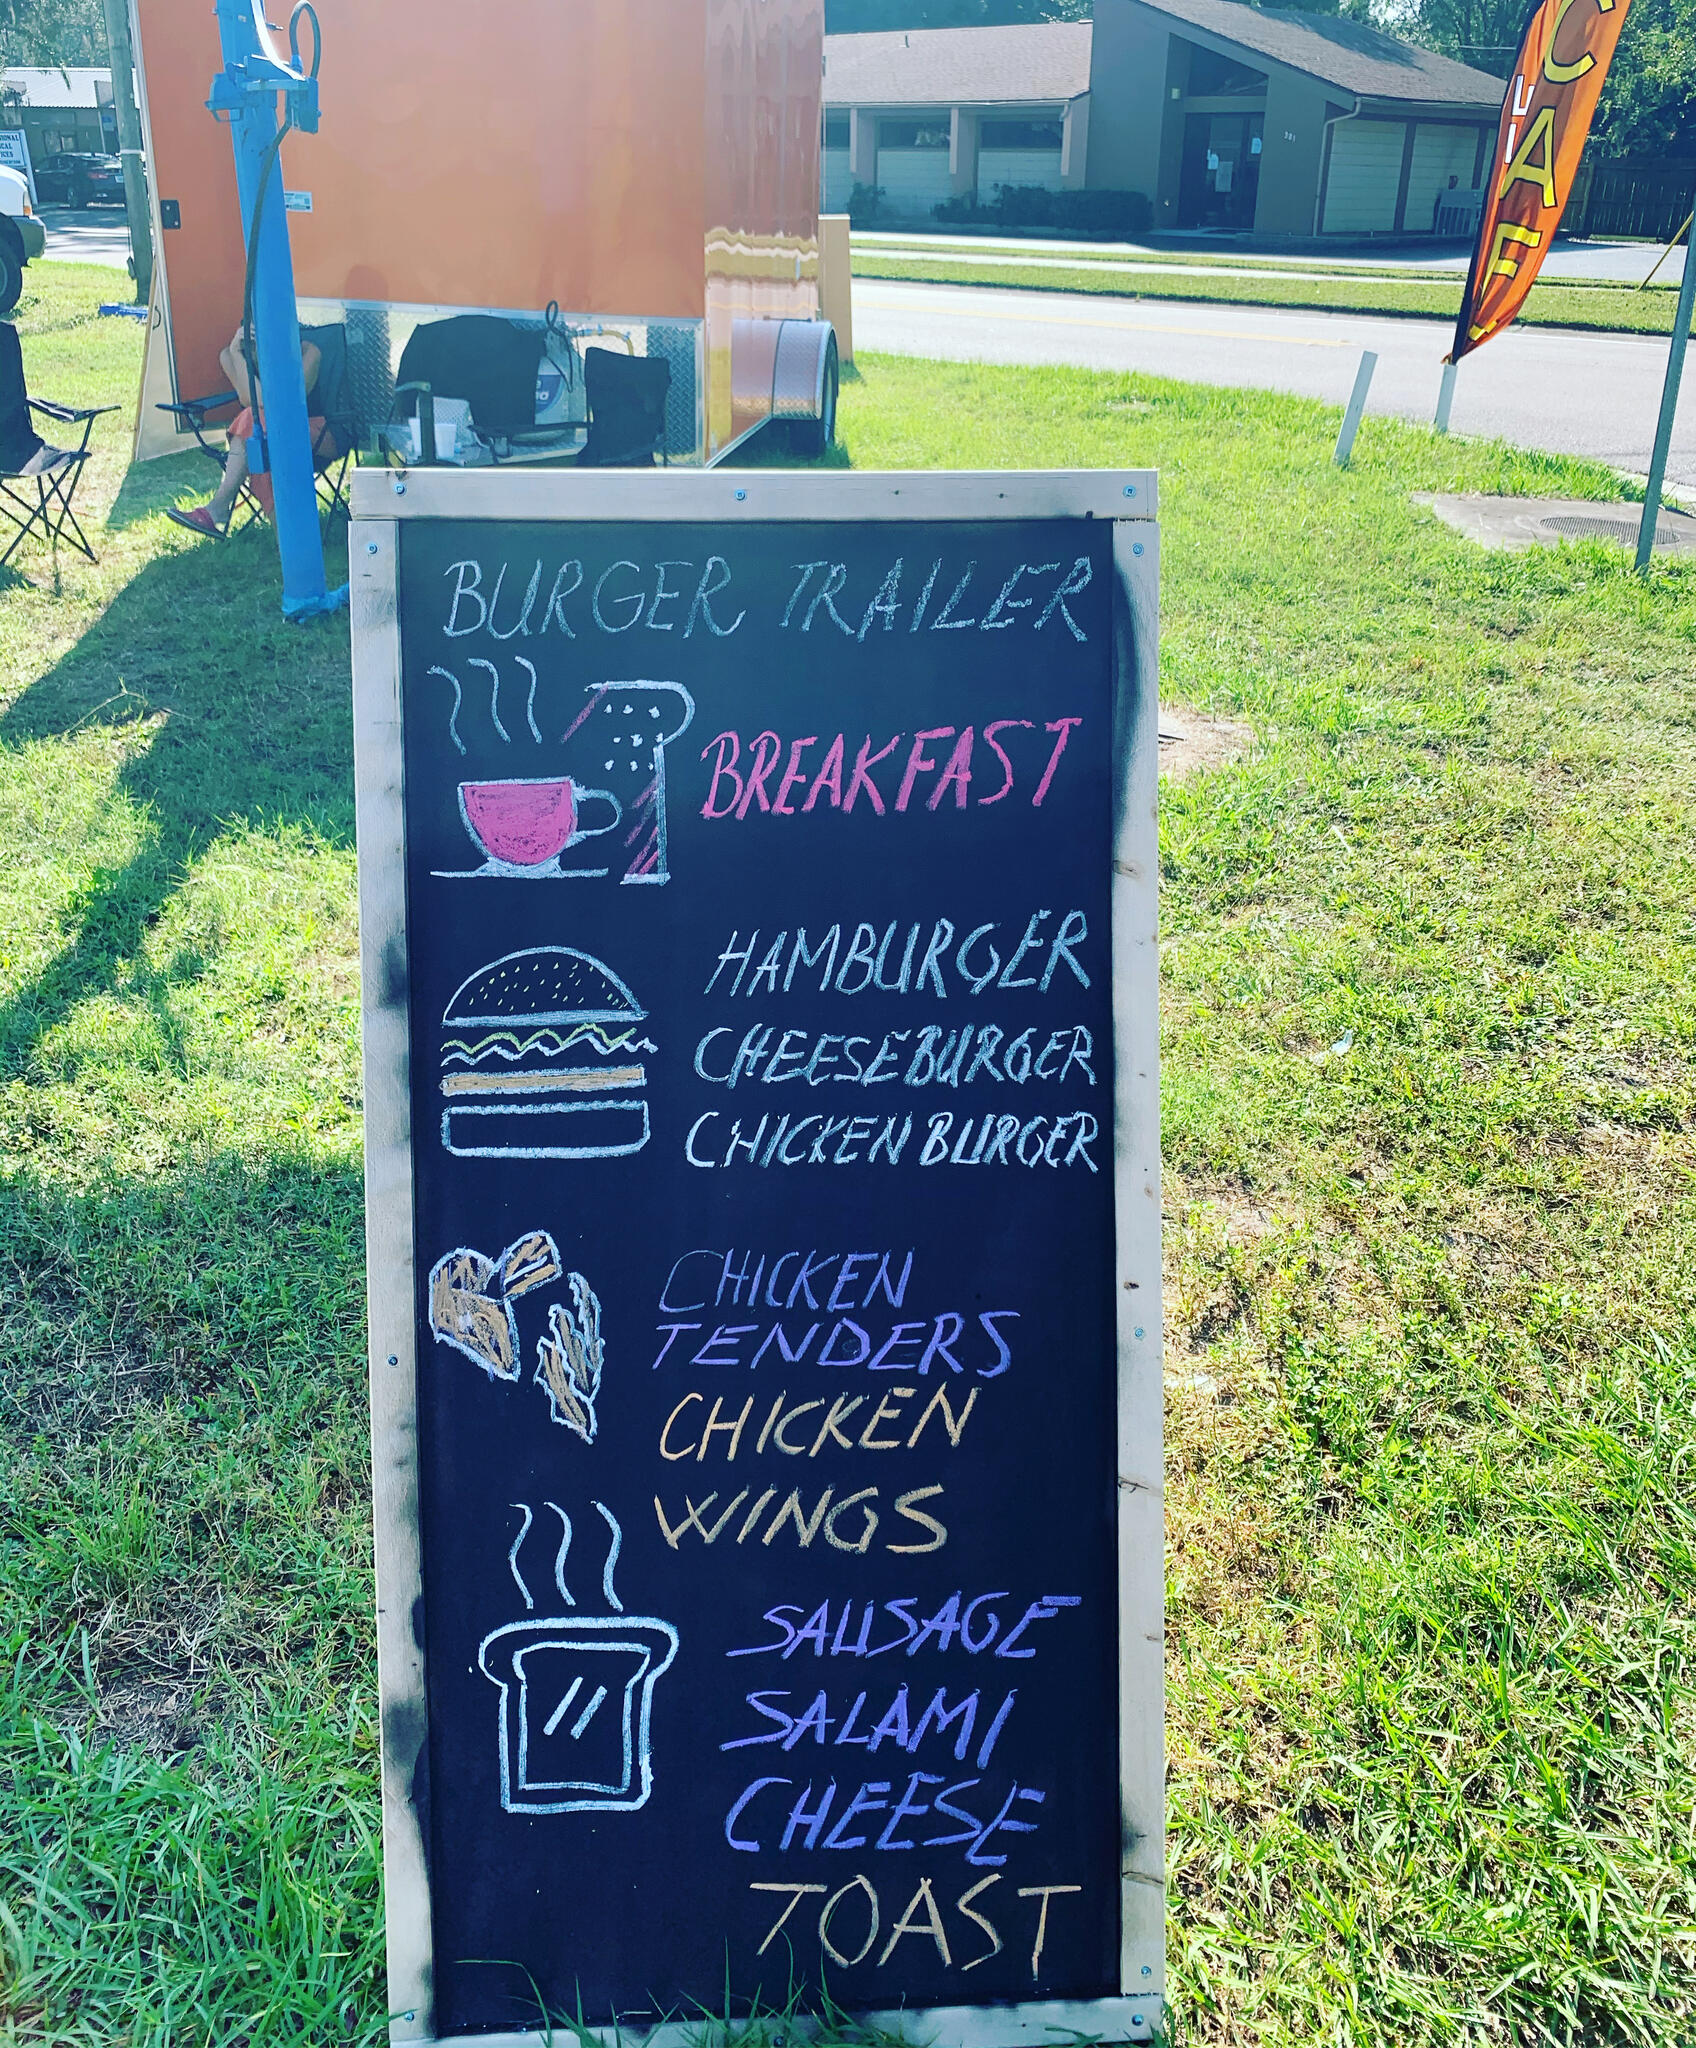 BURGER TRAILER
BREAKFAST
HAMBURGER
CHEESEBURGER
CHICKEN BURGER
CHICKEN
TENDERS
CHICKEN
WINGS
SAUSAGE
SALAMI
CHEESE
TOAST
CAFE
301